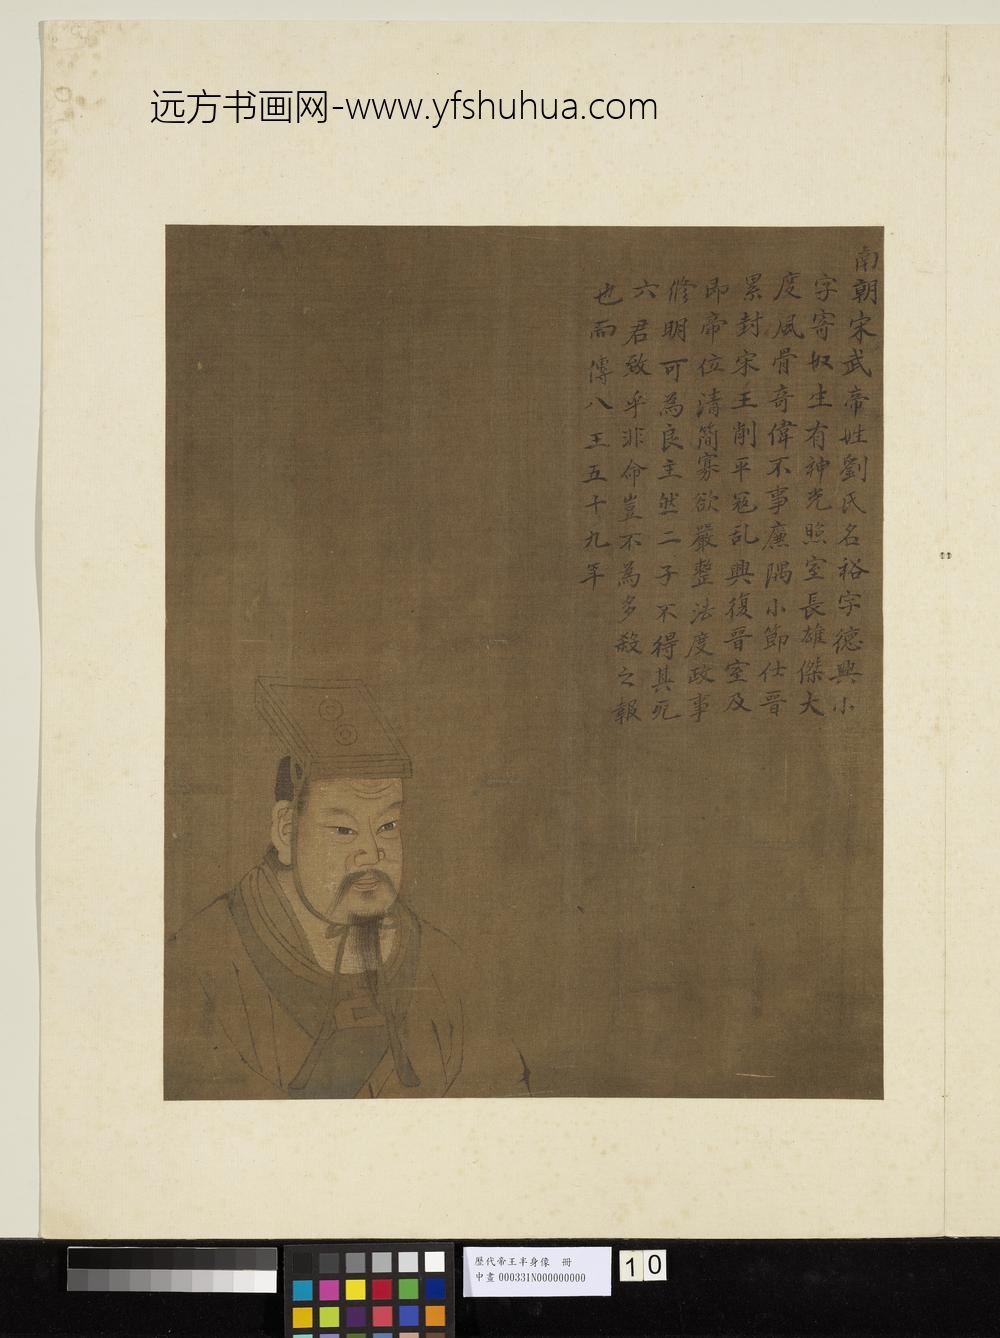 远方书画网-www.yfshuhua.com
南朝宋武帝姓劉氏名裕字德興小
字寄奴生有神光照室長雄傑大
度風骨奇偉不事廉隅小節仕晉
累封宋王削平冦乱興復晉室及
即帝位清簡寡欲嚴整法度政事
修明可為良主然二子不得其死
六君致乎非命豈不為多殺之報
也而傳八王五十九年
歷代帝王半身像 冊
中畫000331N000000000
10